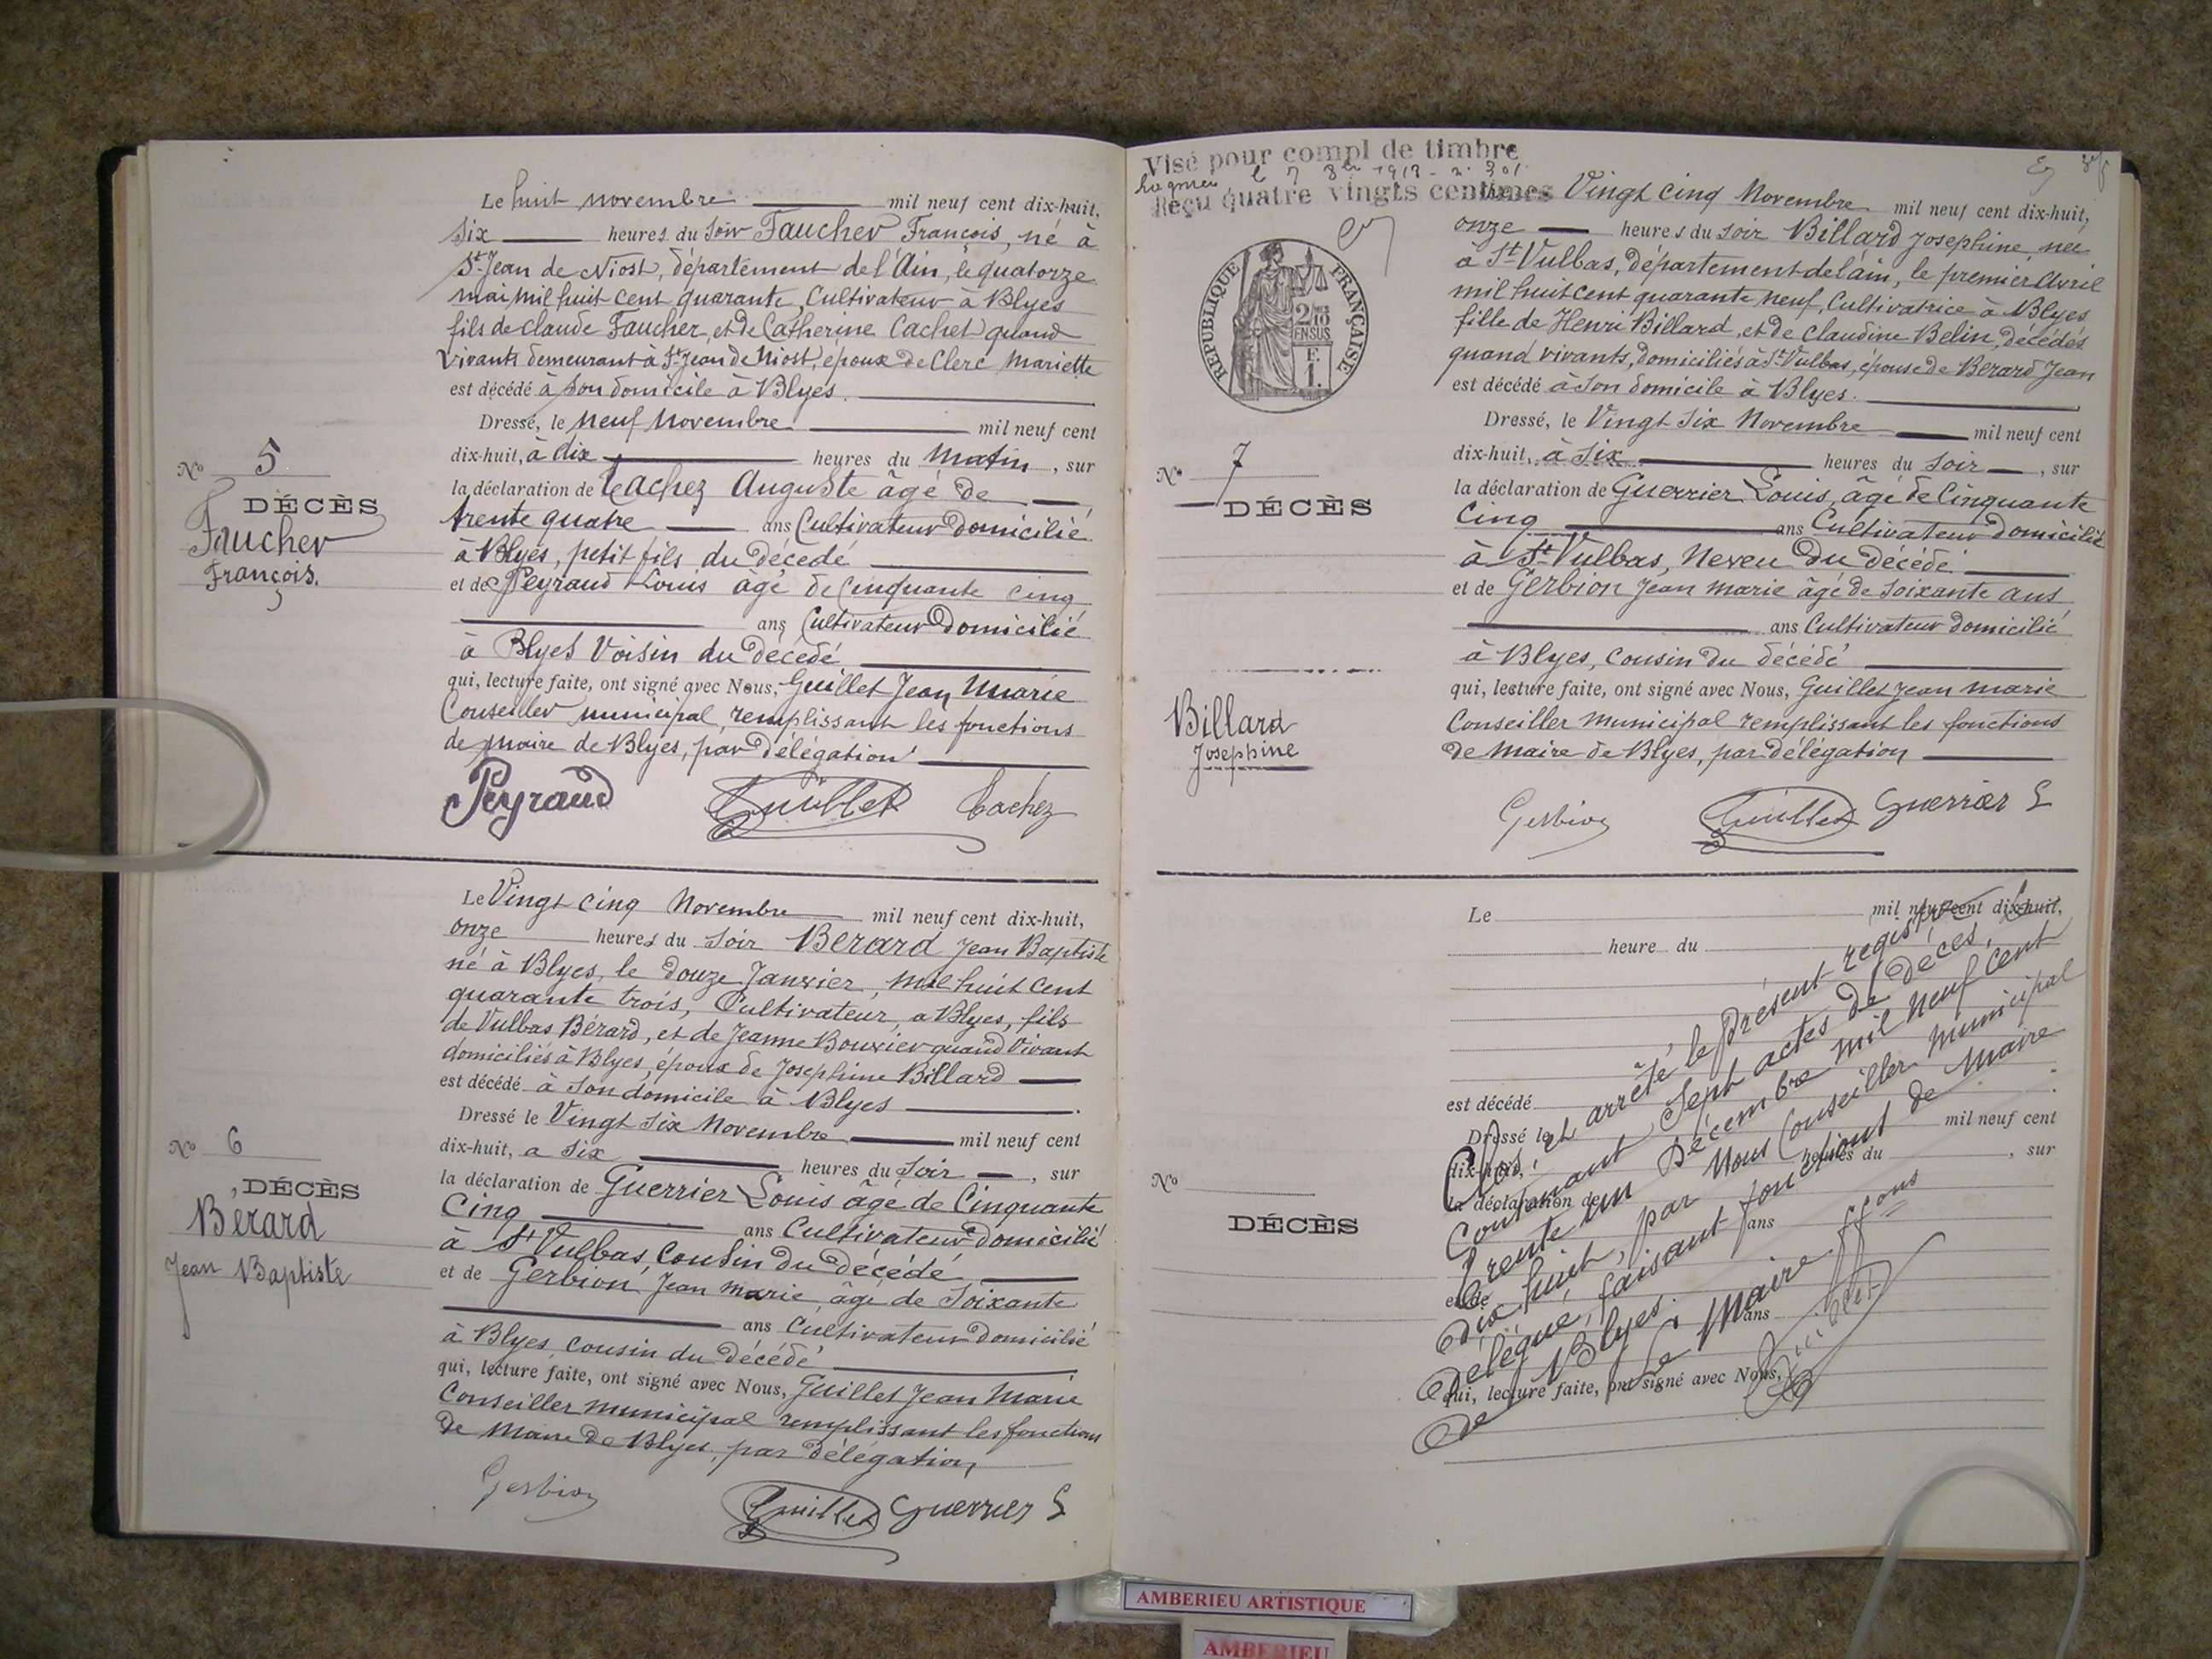 Le huit novembre mil neuf cent dix-huit,
six heures du soir Faucher François, né à
St Jean de Niost, département de l'Ain, le quatorze
mai mil huit cent quarante, Cultivateur à Blyes
fils de Claude Faucher, et de Catherine Cachet quand
vivants demeurant à St Jean de Niost, époux de Clerc Mariette
est décédé à son domicile à Blyes.
Dressé, le neuf Novembre mil neuf cent
dix-huit, à dix heures du Matin, sur
la déclaration de Cachez Auguste âgé de
trente quatre ans Cultivateur domicilié
à Blyes, petit fils du décédé
et de Peyraud Louis âgé de Cinquante cinq
ans Cultivateur domicilié
à Blyes Voisin du décédé
qui, lecture faite, ont signé avec Nous, Guillet Jean Marie
Conseiller municipal remplissant les fonctions
de maire de Blyes, par délégation
Peyraud Guillet Cachez
No 5
DÉCÈS
Faucher
François.
Le Vingt cinq Novembre mil neuf cent dix-huit,
onze heures du soir Berard Jean Baptiste
né à Blyes, le douze Janvier, mil huit cent
quarante trois, Cultivateur, a Blyes, fils
de Vulbas Bérard, et de Jeanne Bouvier quand Vivant
domiciliés à Blyes, époux de Josephine Billard
est décédé à son domicile à Blyes.
Dressé le Vingt six Novembre mil neuf cent
dix-huit, a six heures du soir, sur
la déclaration de Guerrier Louis âgé de Cinquante
Cinq ans Cultivateur domicilié
à St Vulbas, cousin du décédé
et de Gerbion Jean marie âgé de Soixante
ans Cultivateur domicilié
à Blyes, cousin du décédé
qui, lecture faite, ont signé avec Nous, Guillet Jean Marie
Conseiller municipal remplissant les fonctions
de Maire de Blyes, par délégation
Gerbion Guillet Guerrier L
No 6
DÉCÈS
Berard
Jean Baptiste
Visé pour compl de timbre
Reçu quatre vingts centimes
RÉPUBLIQUE FRANÇAISE
2/10
EN SUS
F.
1.
Vingt cinq Novembre mil neuf cent dix-huit,
onze heures du soir Billard Josephine, née
à St Vulbas, Département de l'ain, le premier Avril
mil huit cent quarante neuf, Cultivatrice à Blyes
fille de Henri Billard, et de Claudine Belin, décédés
quand vivants, domiciliés à St Vulbas, épouse de Berard Jean
est décédé à son domicile à Blyes.
Dressé, le Vingt Six Novembre mil neuf cent
dix-huit, à six heures du soir, sur
la déclaration de Guerrier Louis, âgé de Cinquante
Cinq ans Cultivateur domicilié
à St Vulbas, Neveu du décédé
et de Gerbion Jean marie âgé de soixante ans
ans Cultivateur domicilié
à Blyes, cousin du décédé
qui, lecture faite, ont signé avec Nous, Guillet Jean marie
Conseiller municipal remplissant les fonctions
de Maire de Blyes, par délégation
Gerbion Guillet Guerrier L
No 7
DÉCÈS
Billard
Josephine
Le mil neuf cent dix-huit,
heure du
est décédé
Dressé le mil neuf cent
dix-huit, heures du , sur
la déclaration de
ans
et de
ans
qui, lecture faite, ont signé avec Nous,
No
DÉCÈS
Clos, et arrêté le présent registre
Contenant Sept actes de décès, le
trente un Décembre mil neuf cent
dix huit, par Nous Conseiller municipal
Délégué, faisant fonctions de Maire
de Blyes.
Le Maire ffons
Guillet
AMBERIEU ARTISTIQUE
AMBERIEU